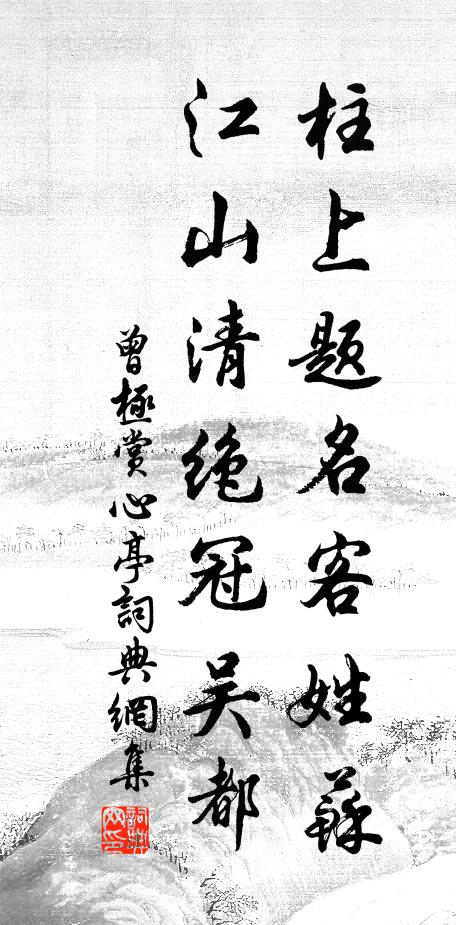 柱上题名客姓蘇
江山清绝冠吴都
曾極賞心亭詞典網集